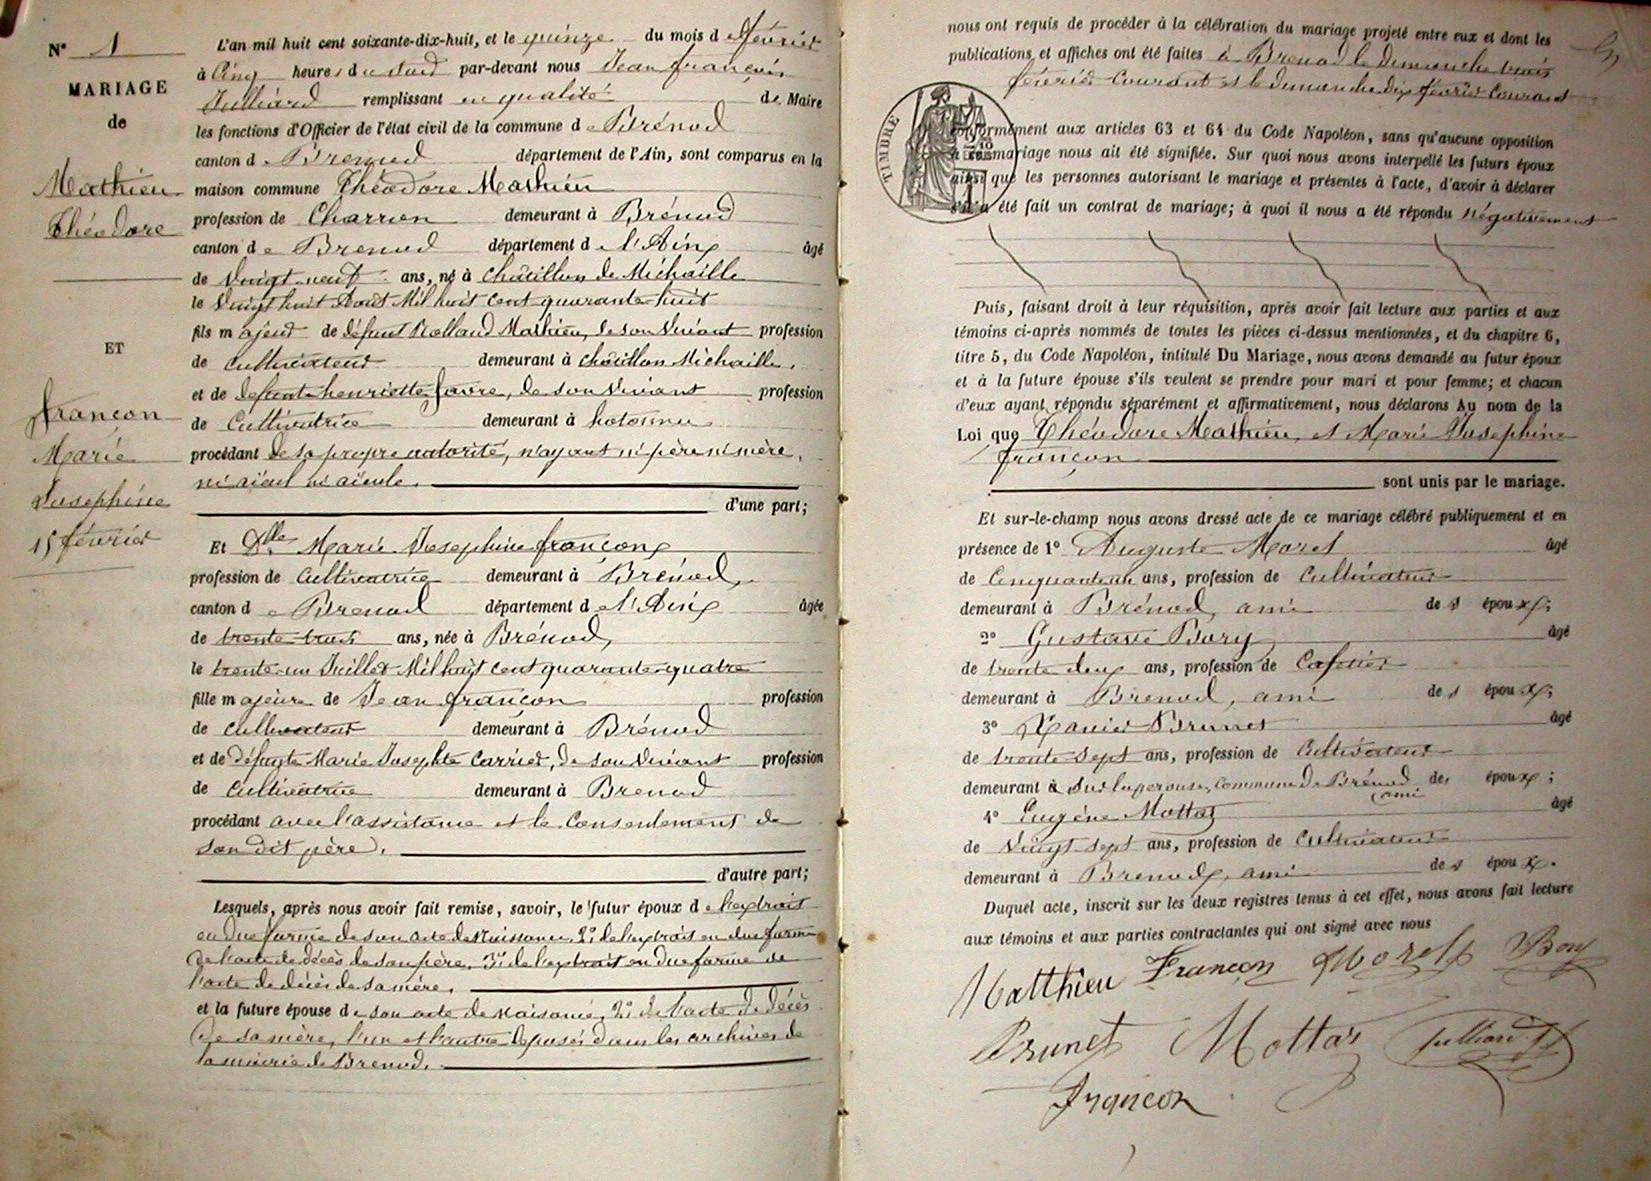 N° 1
MARIAGE
de
Mathieu
Théodore
ET
françon
Marie
Josephine
15 février
L'an mil huit cent soixante-dix-huit, et le quinze du mois d e février
à Cinq heures du soir par-devant nous Jean françois
Julliard remplissant en qualité de Maire
les fonctions d'Officier de l'état civil de la commune d e Brénod
canton d e Brenod département de l'Ain, sont comparus en la
maison commune Théodore Mathieu
profession de Charron demeurant à Brénod
canton d e Brenod département d e l'Ain âgé
de vingt neuf ans, né à Châtillon de Michaille
le vingt huit Aout Mil huit cent quarante huit
fils m ajeur de défunt Rolland Mathieu, de son vivant profession
de cultivateur demeurant à châtillon Michaille,
et de defunte henriette favre, de son vivant profession
de Cultivatrice demeurant à hotonnes
procédant de sa propre autorité, n'ayant ni père ni mère,
ni aïeul ni aïeule.
d'une part;
Et Dlle Marie Josephine françon
profession de Cultivatrice demeurant à Brénod,
canton d e Brenod département d e l'Ain âgée
de trente trois ans, née à Brénod,
le trente un Juillet Mil huit cent quarante quatre
fille m ajeure de Jean françon profession
de cultivateur demeurant à Brénod
et de Défunte Marie Josephte Carrier, de son vivant profession
de Cultivatrice demeurant à Brenod
procédant avec l'assistance et le Consentement de
son dit père.
d'autre part;
Lesquels, après nous avoir fait remise, savoir, le futur époux d e l'extrait
en due forme de son acte de Naissance, 2° de l'extrait en due forme
de l'acte de décès de son père. 3° de l'extrait en due forme de
l'acte de décès de sa mère.
et la future épouse d e son acte de naissance, 2° de l'acte de décès
de sa mère, l'un et l'autre déposés dans les archives de
la mairie de Brenod.
nous ont requis de procéder à la célébration du mariage projeté entre eux et dont les
publications et affiches ont été faites à Brenod le Dimanche trois
février Courant et le dimanche dix février Courant
TIMBRE
conformément aux articles 63 et 64 du Code Napoléon, sans qu'aucune opposition
à ce mariage nous ait été signifiée. Sur quoi nous avons interpellé les futurs époux
ainsi que les personnes autorisant le mariage et présentes à l'acte, d'avoir à déclarer
s'il a été fait un contrat de mariage; à quoi il nous a été répondu négativement
Puis, faisant droit à leur réquisition, après avoir fait lecture aux parties et aux
témoins ci-après nommés de toutes les pièces ci-dessus mentionnées, et du chapitre 6,
titre 5, du Code Napoléon, intitulé Du Mariage, nous avons demandé au futur époux
et à la future épouse s'ils veulent se prendre pour mari et pour femme; et chacun
d'eux ayant répondu séparément et affirmativement, nous déclarons Au nom de la
Loi que Théodore Mathieu, et Marie Josephine
françon
sont unis par le mariage.
Et sur-le-champ nous avons dressé acte de ce mariage célébré publiquement et en
présence de 1° Auguste Morel âgé
de ans, profession de Cultivateur
demeurant à Brénod, ami de s époux;
2° Gustave Bory âgé
de trente deux ans, profession de Cafetier
demeurant à Brenod, ami de s époux;
3° Xavier Brunet âgé
de trente sept ans, profession de Cultivateur
demeurant à commune de Brénod ami des époux;
4° Eugène Mottaz âgé
de vingt sept ans, profession de Cultivateur
demeurant à Brenod, ami de s époux.
Duquel acte, inscrit sur les deux registres tenus à cet effet, nous avons fait lecture
aux témoins et aux parties contractantes qui ont signé avec nous
Matthieu Françon Morel Bory
Brunet Mottaz Julliard
françon